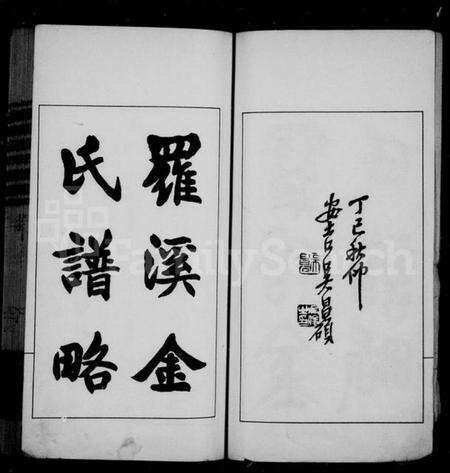 丁巳秋仲
安吉吳昌碩
羅溪金
氏譜略
FamilySearch